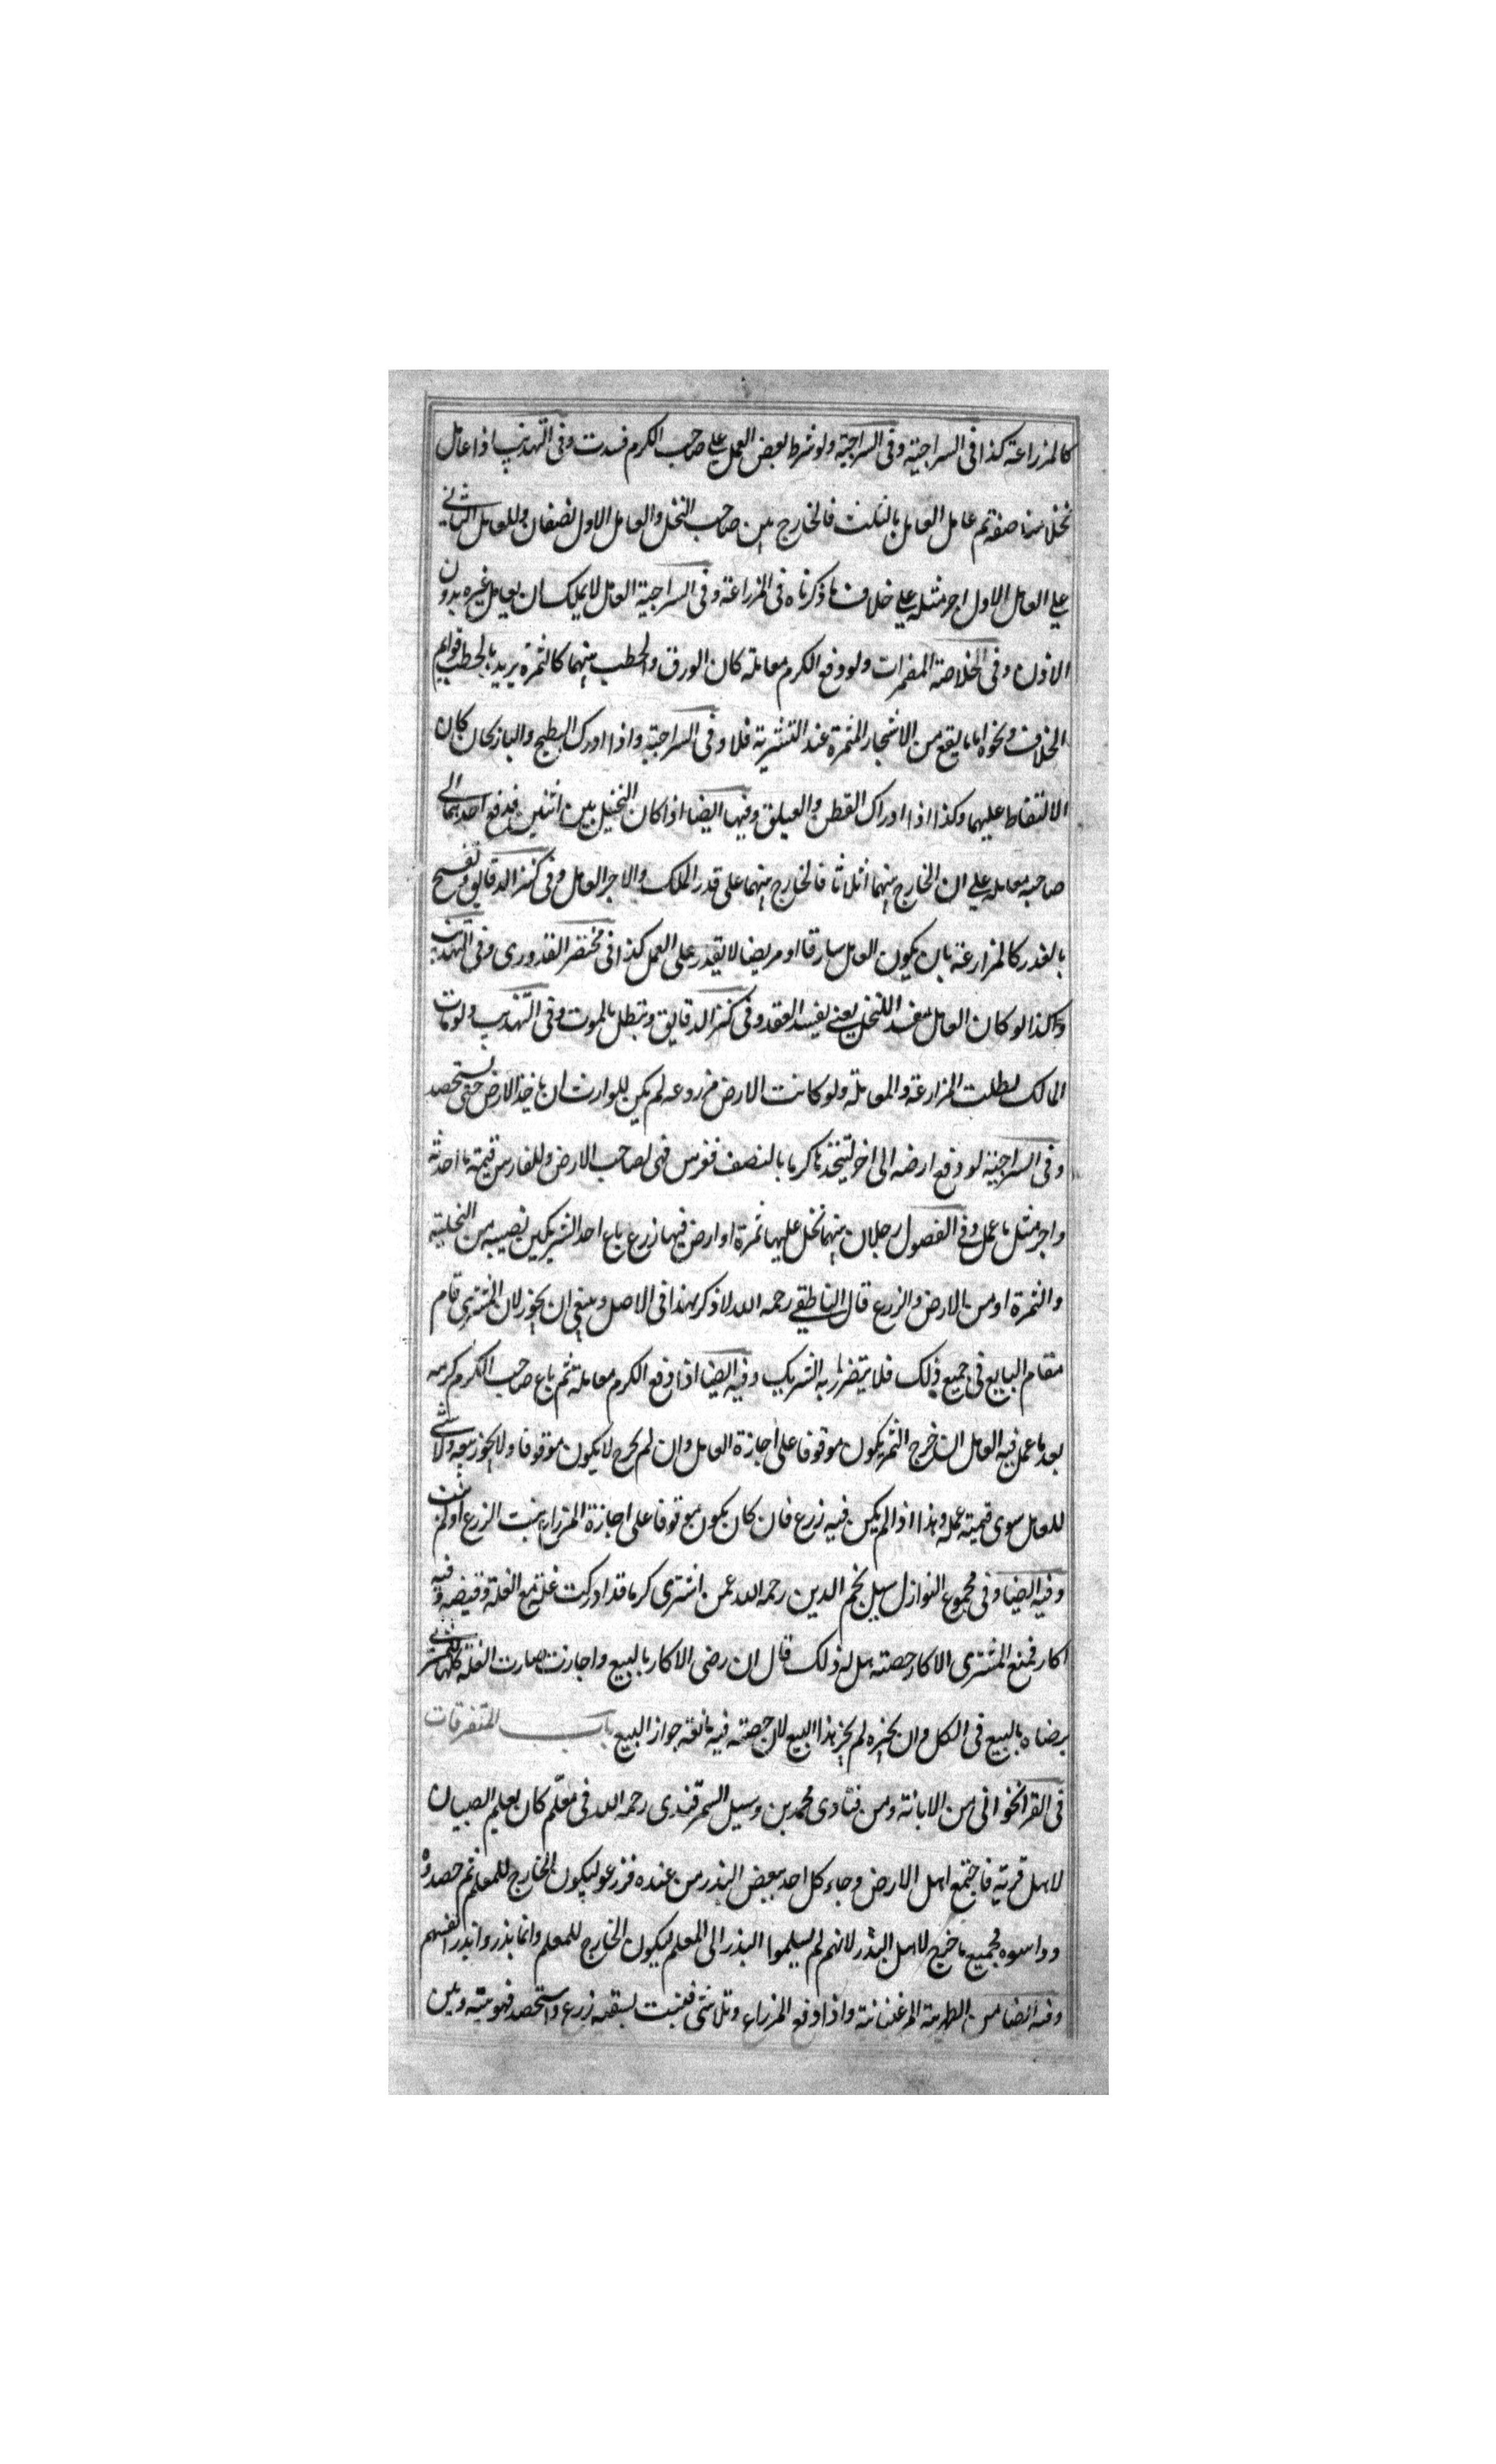 كالمزراعة كذا فى السراجية وفى السراجية ولو شرط بعض العمل على صاحب الكرم فسدت وفى التهذيب اذا عامل
نخلا مناصفة ثم عامل العامل بالثلث فالخارج بين صاحب النخل والعامل الاول نصفان وللعامل الثانى
على العامل الاول اجر مثله على خلاف ما ذكرناه فى المزراعة وفى السراجية العامل لا يملك ان يعامل غيره بدون
الاذن وفى الخلاصة المضمرات ولو دفع الكرم معاملة كان الورق والحطب بينهما كالثمرة يريد بالحطب قوايم
الخلاف ونحوه اما ما يقع من الاشجار المثمرة عند التشرية فلا وفى السراجية واذا ادرك البطيخ والباذنجان كان
الالتقاط عليهما وكذا اذا ادراك القطن والعيلق وفيها ايضا اذا كان النخيل بين اثنين فدفع احدهما الى
صاحبه معامله على ان الخارج بينهما اثلاثا فالخارج بينهما على قدر الملك والاجر العامل وفى كنز الدقايق وتفسخ
بالعذر كالمزارعة بان يكون العامل سارقا او مريضا لا يقدر على العمل كذا فى مختصر القدورى وفى التهذيب
وكذا لو كان العامل يفسد النخل يعنى يفسد العقد وفى كنز الدقايق وتبطل بالموت وفى التهذيب ولو مات
المالك بطلت المزارعة والمعاملة ولو كانت الارض مزروعه لم يكن للوارث ان ياخذ الارض حتى يستحصد
وفى السراجية لو دفع ارضه الى اخر ليتخذها كرما بالنصف فغرس فهى لصاحب الارض وللغارس قيمة ما احدثه
واجر مثل ما عمل وفى الفصول رجلان بينهما نخل عليها ثمرة او ارض فيها زرع باع احد الشريكين نصيبه من النخلية
والثمرة او من الارض والزرع قال الناطقى رحمه الله لا ذكر لهذا فى الاصل وينبغى ان يجوز لان المشترى قام
مقام البايع فى جميع ذلك فلا يتضرر به الشريك وفيه ايضا اذا دفع الكرم معاملة ثم باع صاحب الكرم كرمه
بعد ما عمل فيه العامل ان خرج الثمر يكون موقوفا على اجازة العامل وان لم يخرج لا يكون موقوفا ولا يجوز بيعه ولا شى
للعامل سوى قيمة عمله وهذا اذا لم يكن فيه زرع فان كان يكون موقوفا على اجازة المزراع ينبت الزرع او لم ينبت
وفيه ايضا وفى مجموع النوازل سيل نجم الدين رحمه الله عمن اشترى كرما قد ادركت غلته مع الغلة وقبضه وفيه
اكار فمنع المشترى الاكار حصته هل له ذلك قال ان رضى الاكار بالبيع واجازت صارت الغلة كلها للمشترى
برضاه بالبيع فى الكل وان يجيزه لم يجز هذا البيع لان حصته فيه مانعة جواز البيع باب المتفرقات
فى القراخوانى من الابانة ومن فتاوى محمد بن وسيل السمرقندى رحمه الله فى معلم كان يعليم الصبيان
لاهل قرية فاجتمع اهل الارض وجاء كل احد ببعض البذر من عنده فزرعو ليكون الخارج للمعلم ثم حصدوه
وداسوه فجميع ما خرج لاهل البذر لانهم لم يسلموا البذر الى المعلم ليكون الخارج للمعلم وانما بذروا بذر انفسهم
وفيه ايضا من واذا دفع المزراع وتلاشى فنبت بسقيه زرع واستحصد فهو بينه وبين